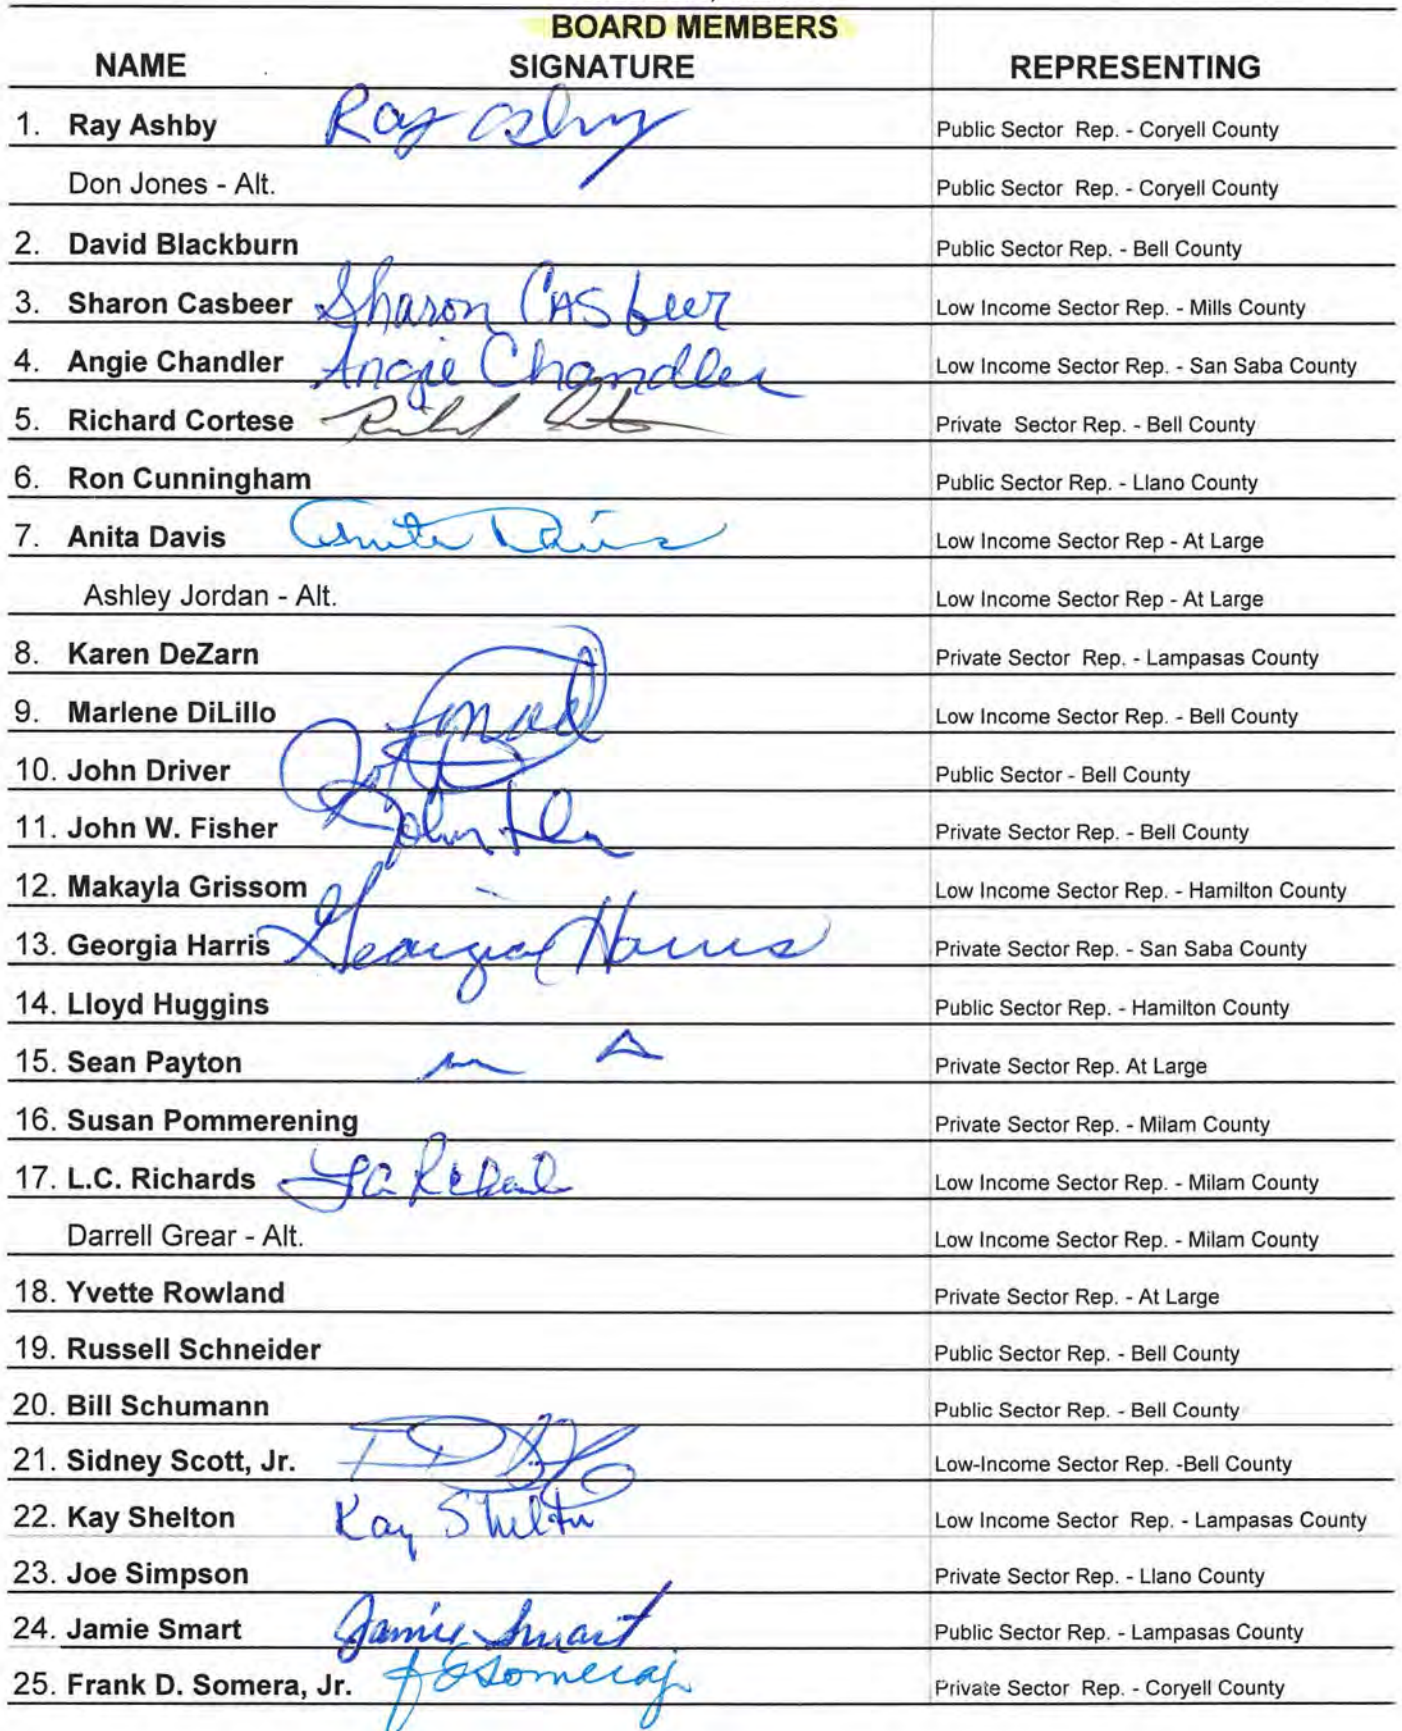 BOARD MEMBERS
NAME SIGNATURE REPRESENTING
1. Ray Ashby Ray Ashby Public Sector Rep. - Coryell County
Don Jones - Alt. Public Sector Rep. - Coryell County
2. David Blackburn Public Sector Rep. - Bell County
3. Sharon Casbeer Sharon CASbeer Low Income Sector Rep. - Mills County
4. Angie Chandler Angie Chandler Low Income Sector Rep. - San Saba County
5. Richard Cortese Private Sector Rep. - Bell County
6. Ron Cunningham Public Sector Rep. - Llano County
7. Anita Davis Anita Davis Low Income Sector Rep - At Large
Ashley Jordan - Alt. Low Income Sector Rep - At Large
8. Karen DeZarn Private Sector Rep. - Lampasas County
9. Marlene DiLillo Low Income Sector Rep. - Bell County
10. John Driver Public Sector - Bell County
11. John W. Fisher John Private Sector Rep. - Bell County
12. Makayla Grissom Low Income Sector Rep. - Hamilton County
13. Georgia Harris Georgia Harris Private Sector Rep. - San Saba County
14. Lloyd Huggins Public Sector Rep. - Hamilton County
15. Sean Payton Private Sector Rep. At Large
16. Susan Pommerening Private Sector Rep. - Milam County
17. L.C. Richards Low Income Sector Rep. - Milam County
Darrell Grear - Alt. Low Income Sector Rep. - Milam County
18. Yvette Rowland Private Sector Rep. - At Large
19. Russell Schneider Public Sector Rep. - Bell County
20. Bill Schumann Public Sector Rep. - Bell County
21. Sidney Scott, Jr. Low-Income Sector Rep. -Bell County
22. Kay Shelton Kay Shelton Low Income Sector Rep. - Lampasas County
23. Joe Simpson Private Sector Rep. - Llano County
24. Jamie Smart Jamie Smart Public Sector Rep. - Lampasas County
25. Frank D. Somera, Jr. Private Sector Rep. - Coryell County